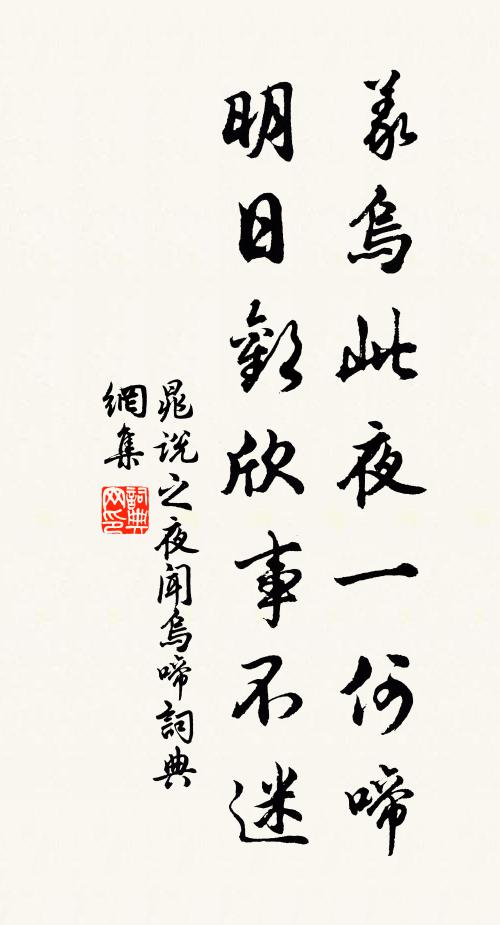 義烏此夜一何啼
明日歡欣事不迷
晁說之夜聞烏啼詞典
網集
詞典
网印